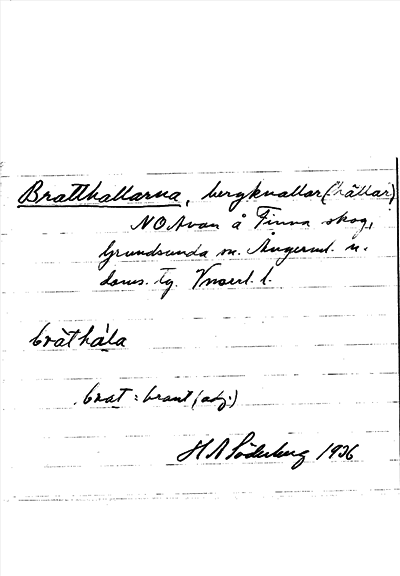 Bratthallarna, bergknallar (hällar)
NO Avan å Finna skog,
Grundsunda sn. Ångerml. n.
doms. Tg. Vnorrl. l.
bràthàla
brat = brant (adj.)
H A Söderberg 1936